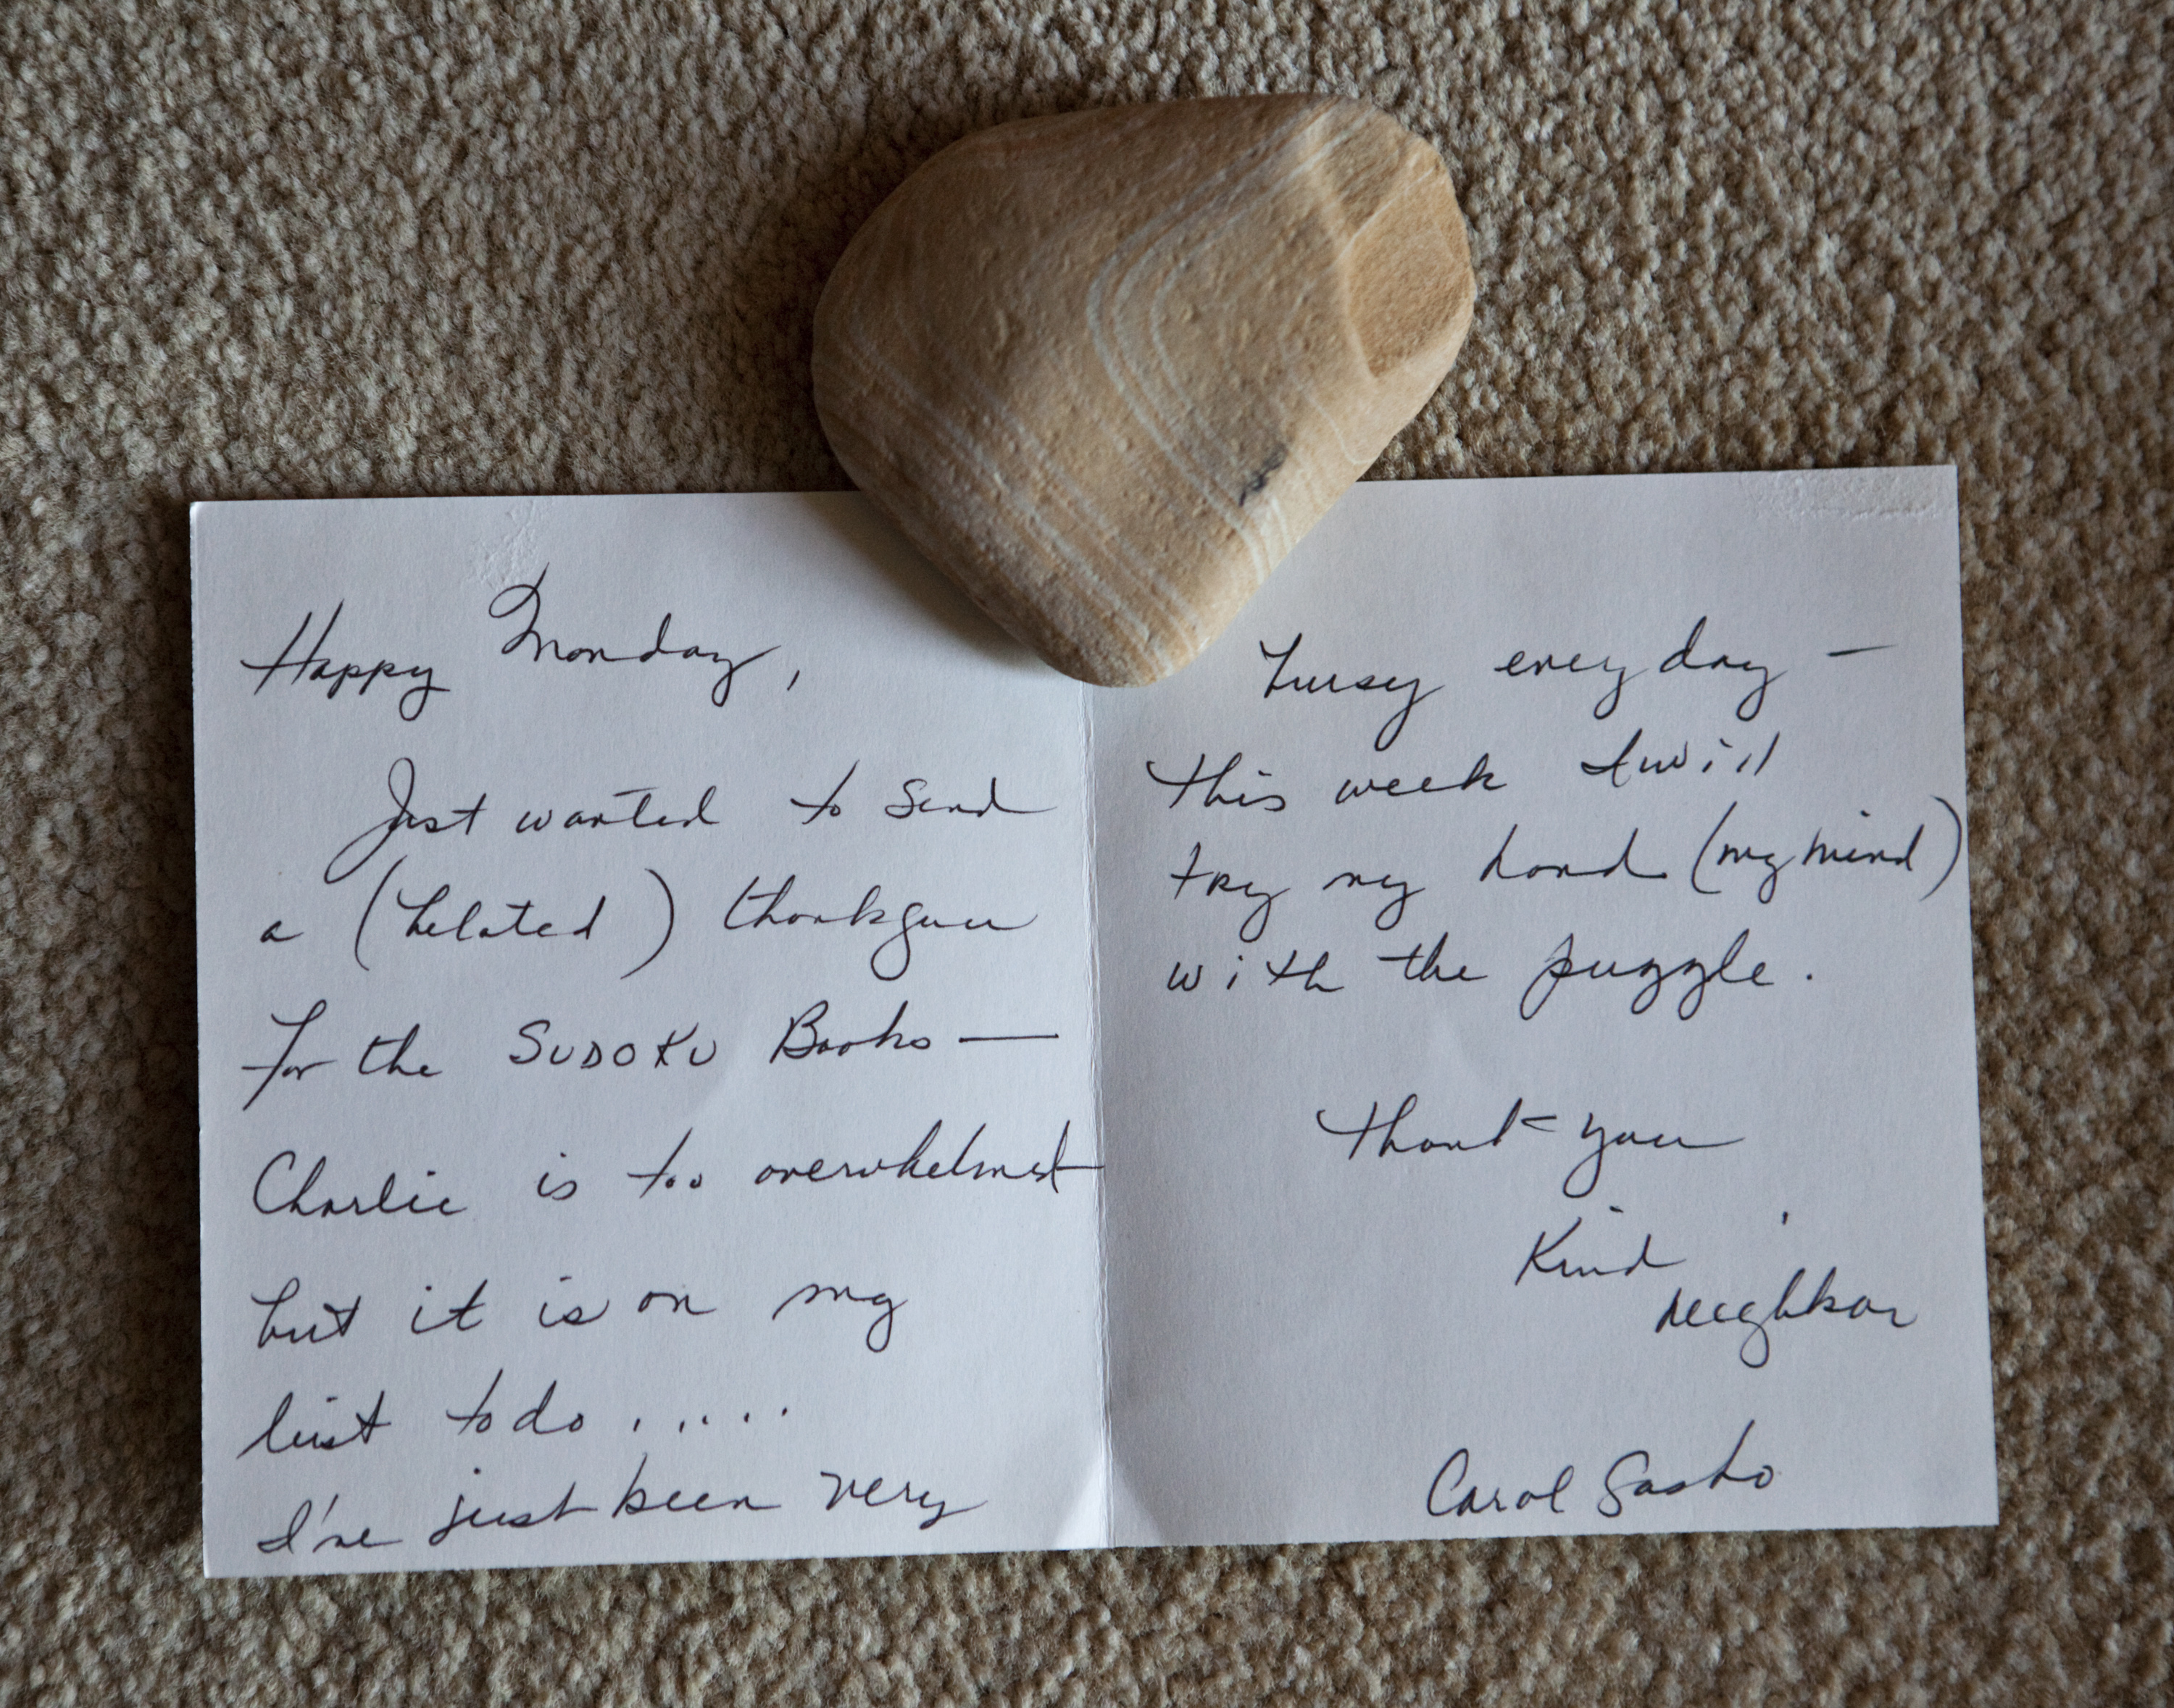 Happy Monday,
Just wanted to send
a (belated) thank you
for the SUDOKU Books —
Charlie is too overwhelmed
but it is on my
list to do .....
I've just been very
busy every day —
this week I will
try my hand (my mind)
with the puzzle.
Thank you
Kind
neighbor
Carol